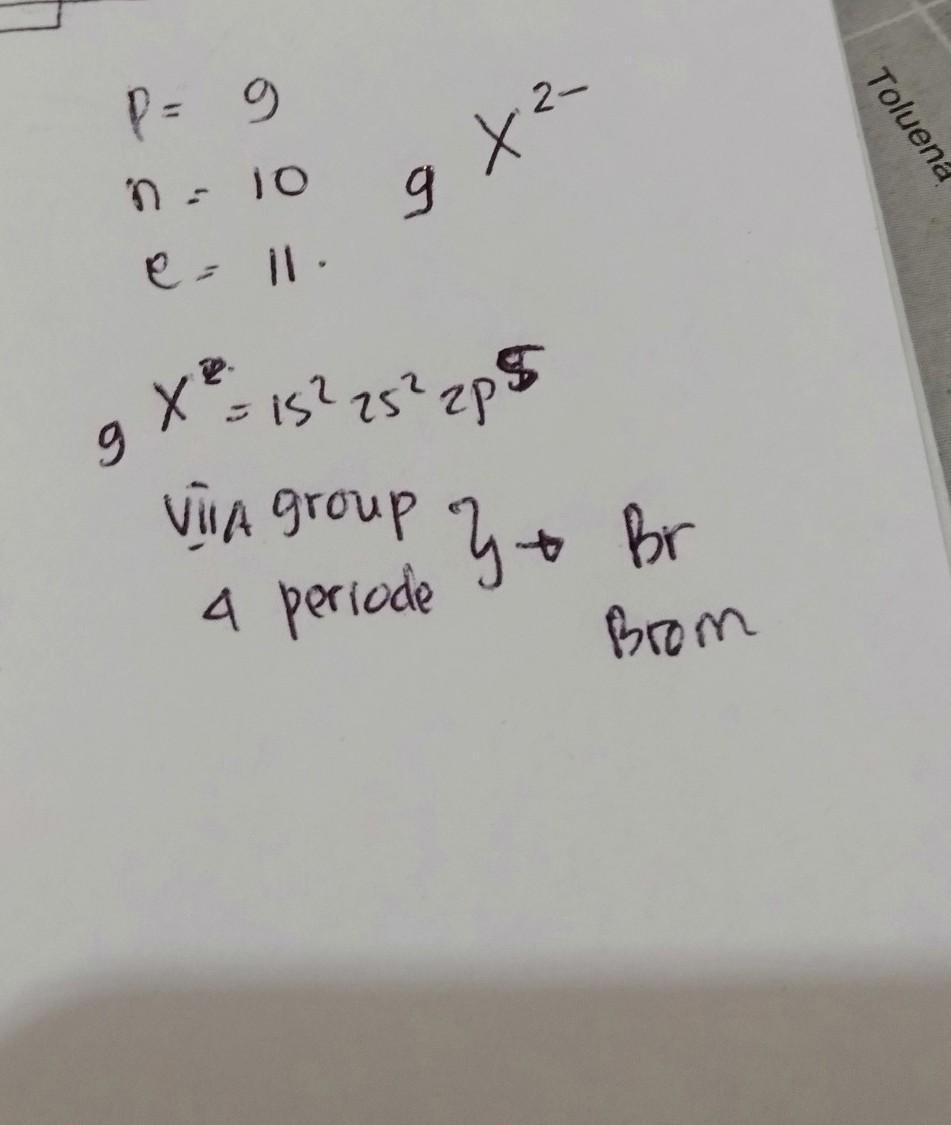 p= 9
n= 10
e= 11.
9 X²⁻
9 X = 1s² 2s² 2p⁵
VIIA group
4 periode
} → Br
Brom
Toluena